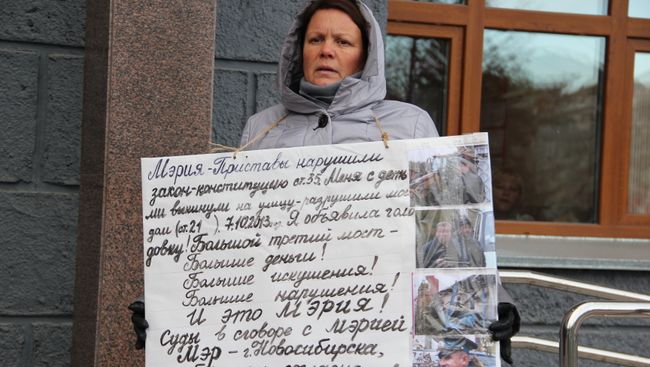 Мэрия-Приставы нарушили
закон-конституцию ст.35. Меня с деть
ми выкинули на улицу-разрушили мой
дом (от.21 ). 7.10.2013г. Я объявила голо
довку! Большой третий мост-
Большие деньги!
Большие искушения!
Большие нарушения!
И это Мэрия!
Суды в сговоре с мэрией
Мэр-г.Новосибирска,